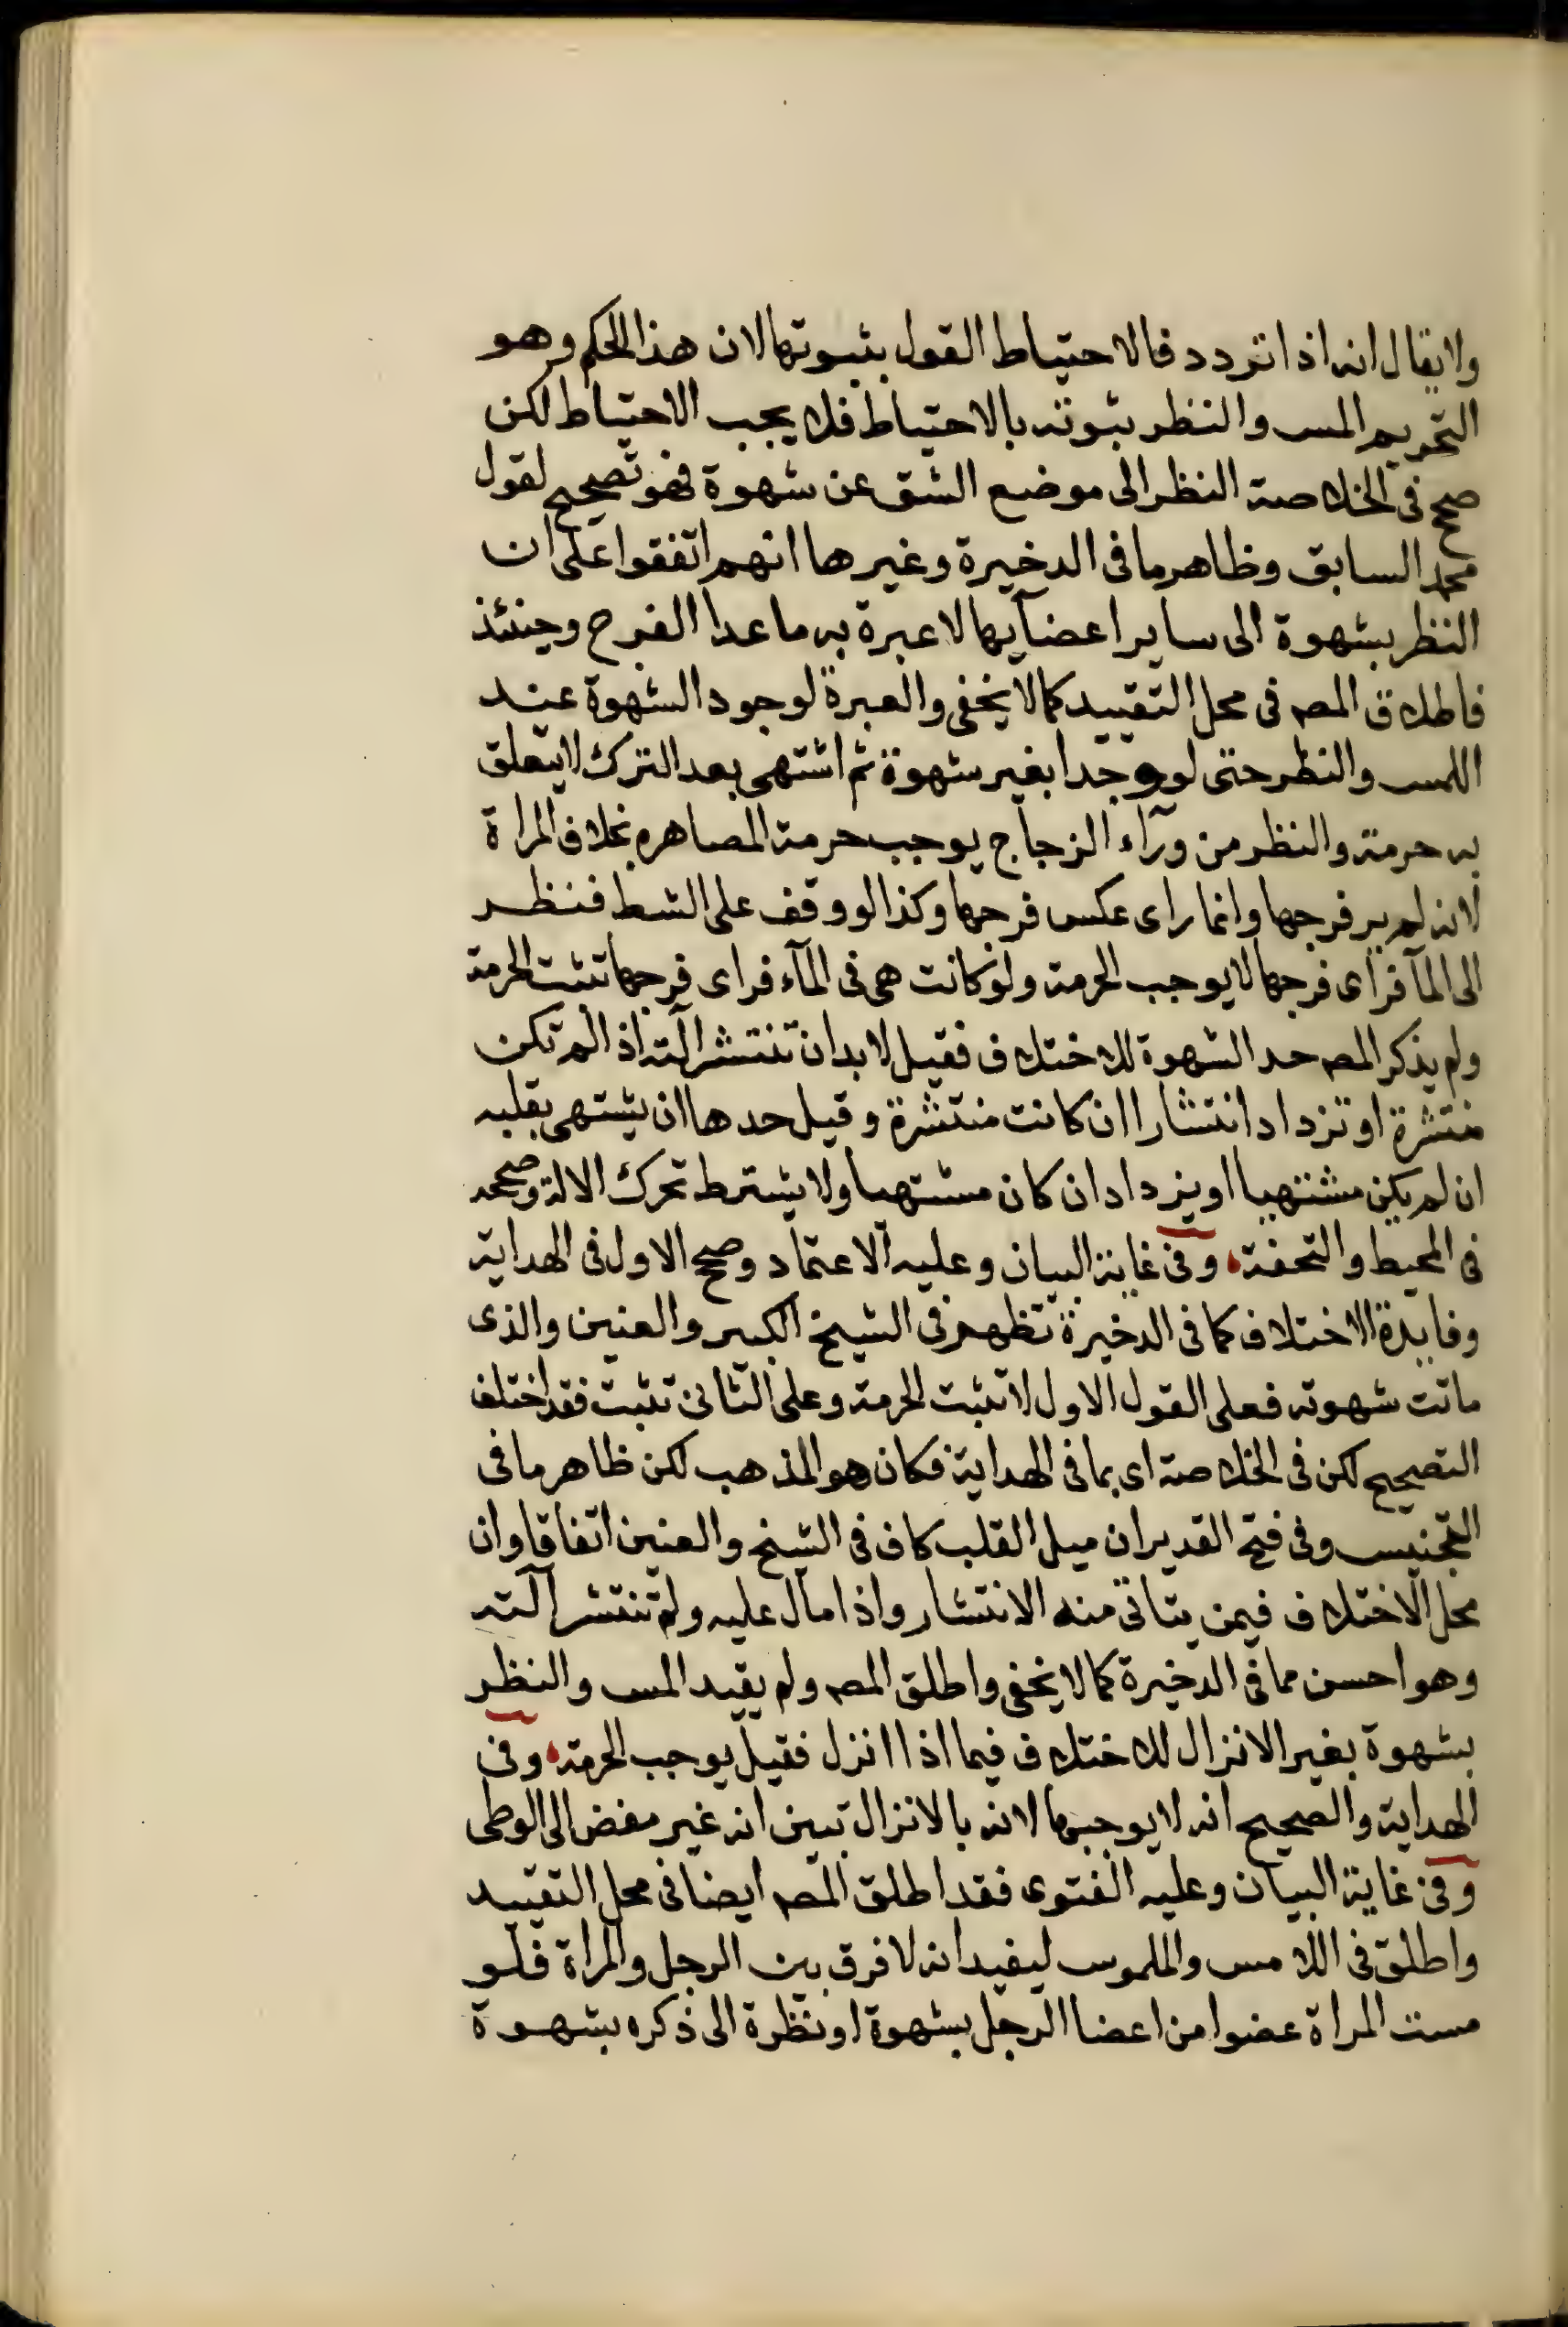 ولا يقال انه اذا تردد فالاحتياط القول بثبوتها لان هذا الحكم وهو
التحريم المس والنظر ثبوته بالاحتياط فلا يجب الاحتياط لكن
صحح في الخلاصة النظر الى موضع الشق عن شهوة فهو تصحيح لقول
محمد السابق وظاهر ما في الدخيرة وغيرها انهم اتفقوا على ان
النظر بشهوة الى ساير اعضآيها لا عبرة به ما عدا الفرج وحينئذ
فاطلاق المصـ في محل التقييد كما لا يخفى والعبرة لوجود الشهوة عند
اللمس والنظر حتى لو وجدا بغير شهوة ثم اشتهى بعد الترك لا يتعلق
به حرمة والنظر من ورآء الزجاج يوجب حرمة المصاهره بخلاف المراة
لانه لم ير فرجها وانما راى عكس فرجها وكذا لو وقف على الشط فنظر
الى المآ فراى فرجها لا يوجب الحرمة ولو كانت هي في المآء فراى فرجها تثبت الحرمة
ولم يذكر المصـ حد الشهوة للاختلاف فقيل لابد ان تنتشر آلته اذ الم تكن
منتشرة او تزداد انتشارا ان كانت منتشرة وقيل حدها ان يشتهي بقلبه
ان لم يكن مشتهيا او يزداد ان كان مشتهيا ولا يشترط تحرك الالة وصححه
في المحيط والتحفة وفي غاية البيان وعليه الاعتماد وصحح الاول في الهداية
وفايدة الاختلاف كما في الدخيرة تظهر في الشيخ الكبير والعنين والذي
ماتت شهوته فعلى القول الاول لا تثبت الحرمة وعلى الثاني تثبت فقد اختلف
التصحيح لكن في الخلاصة اى بما في الهداية فكان هو المذهب لكن ظاهر ما في
التجنيس وفي فتح القدير ان ميل القلب كاف في الشيخ والعنين اتفاقا وان
محل الاختلاف فيمن يتاتى منه الانتشار واذا مال عليه ولم تنتشر آلته
وهو احسن مما في الدخيرة كما لا يخفى واطلق المصـ ولم يقيد المس والنظر
بشهوة بغير الانزال للاختلاف فيما اذا انزل فقيل يوجب الحرمة وفي
الهداية والصحيح انه لا يوجبها لانه بالانزال تبين انه غير مفض الى الوطى
وفي غاية البيان وعليه الفتوى فقد اطلق المصـ ايضا في محل التقييد
واطلق في اللامس والملموس ليفيد انه لا فرق بين الرجل والمراة فلو
مست المراة عضوا من اعضا الرجل بشهوة او نظرة الى ذكره بشهوة